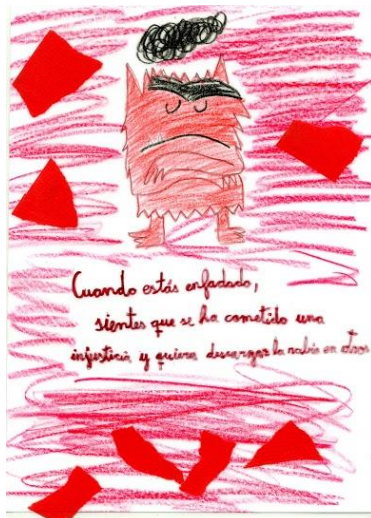 Cuando estás enfadado,
sientes que se ha cometido una
injusticia y quieres descargar la rabia en otros